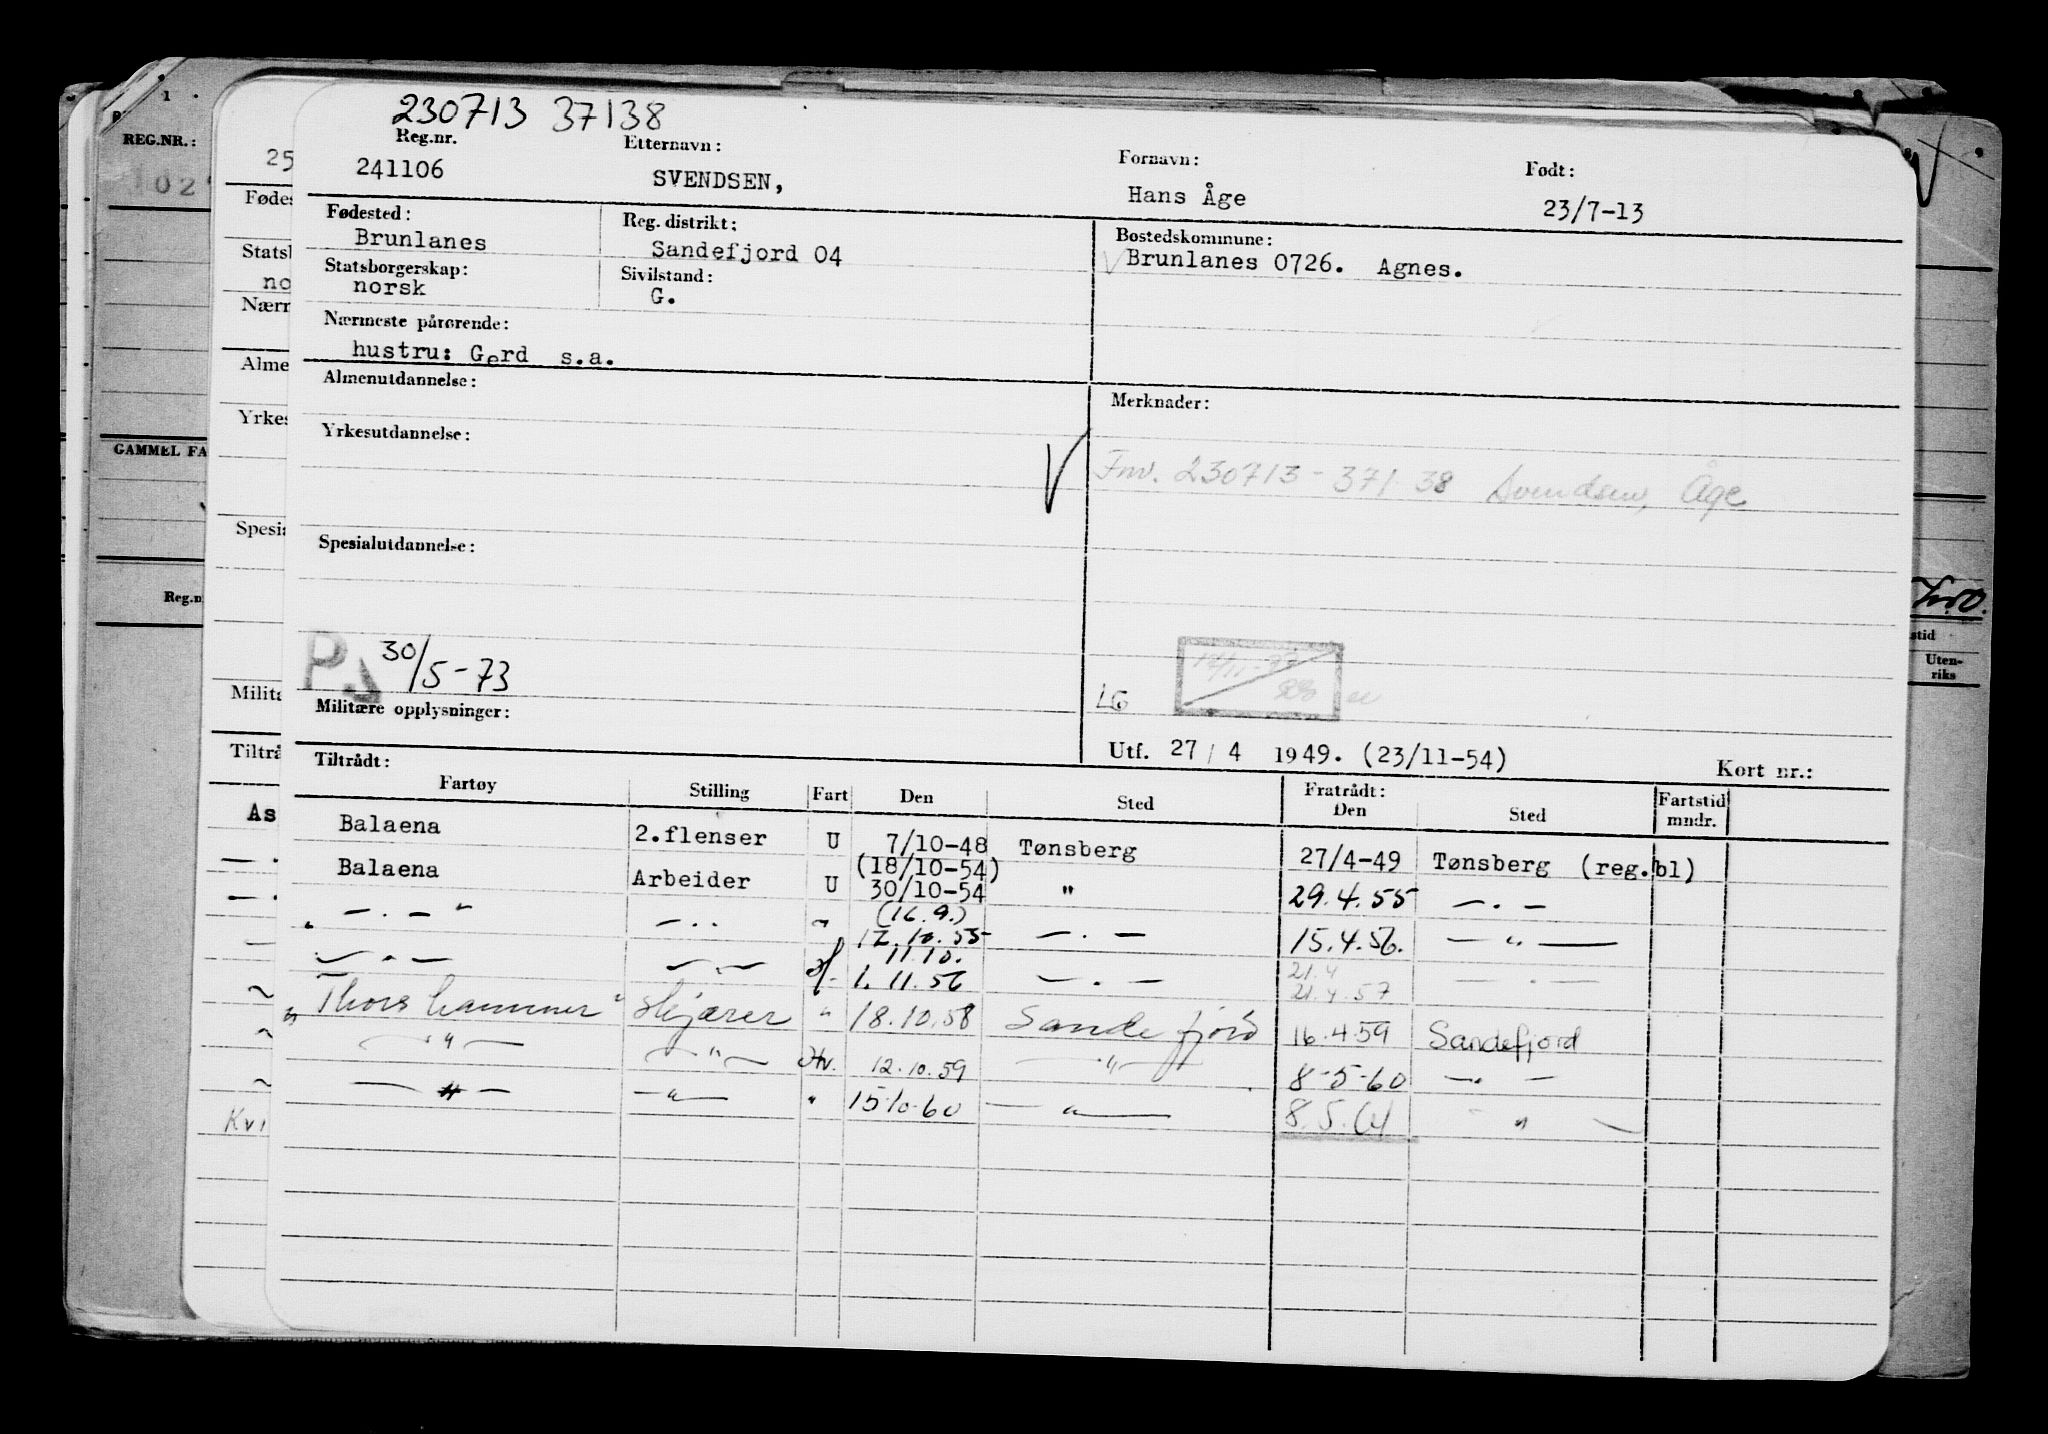 230713 37138
Reg.nr. Etternavn: Fornavn: Født:
241106 SVENDSEN, Hans Åge 23/7-13
Fødested: Reg. distrikt: Bostedskommune:
Brunlanes Sandefjord 04 Brunlanes 0726. Agnes.
Statsborgerskap: Sivilstand:
norsk G.
Nærmeste pårørende:
hustru: Gerd s.a.
Almenutdannelse: Merknader:
Yrkesutdannelse:
Fnr. 230713-37138 Svendsen, Åge
Spesialutdannelse:
30/5-73
LG
Militære opplysninger:
Utf. 27/4 1949. (23/11-54) Kort nr.:
Tiltrådt: Fratrådt:
Fartøy Stilling Fart Den Sted Den Sted Fartstid mndr.
Balaena 2.flenser U 7/10-48 Tønsberg 27/4-49 Tønsberg (reg.bl)
(18/10-54)
Balaena Arbeider U 30/10-54 " 29.4.55 — . —
(16.9.)
" — . — " — . . " 12.10.55 — . — 15.4.56. — " —
11.10. 21.4
— . — — . — 1.11.56 — . — 21.4.57 — . —
"Thorshammer" Skjærer " 18.10.58 Sandefjord 16.4.59 Sandefjord
— " — — " — Hv. 12.10.59 — " — 8-5-60 — " —
— " — — " — " 15.10.60 — " — 8.5.61 — " —
REG.NR.:
GAMMEL FA
Reg.n
25
Fødes
Statsb
no
Nærn
Alme
Yrkes
Spesia
Militæ
Tiltrå
As
Kvi
stid
Uten-
riks